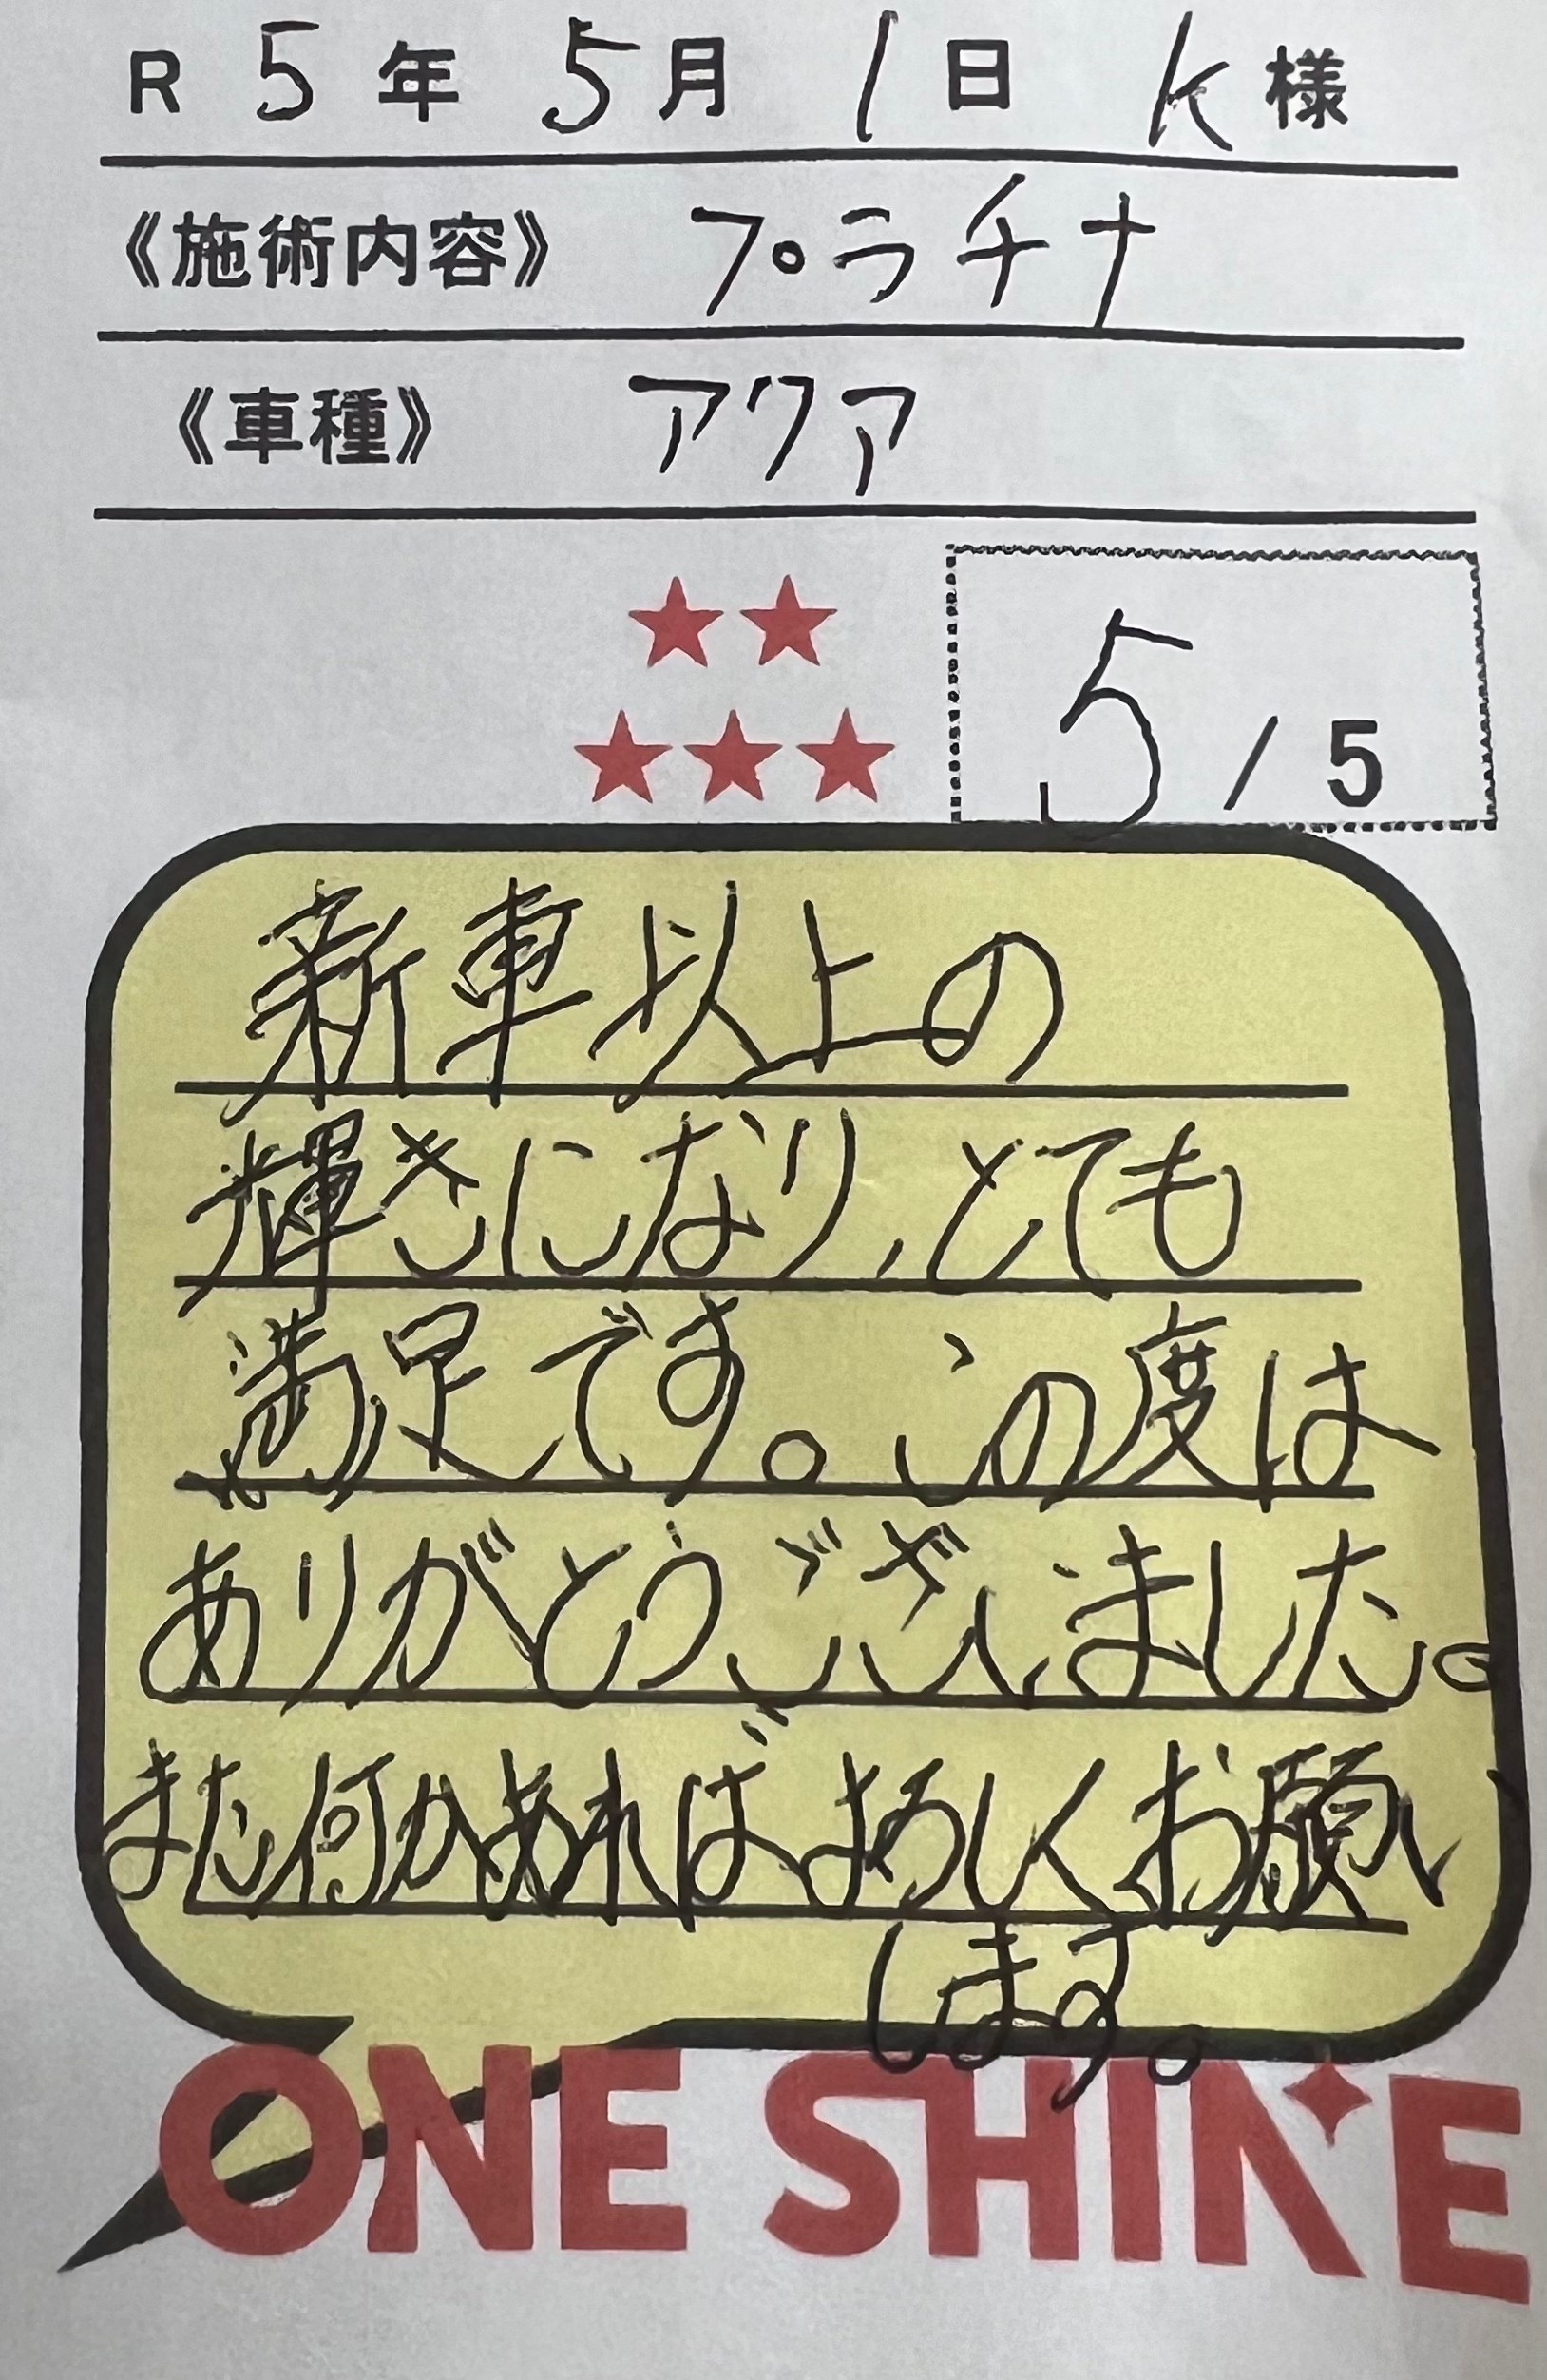 R 5 年 5 月 1 日 K 様
《施術内容》 プラチナ
《車種》 アクア
5 / 5
新車以上の
輝きになり、とても
満足です。この度は
ありがとうございました。
また何かあればよろしくお願い
します。
ONE SHINE